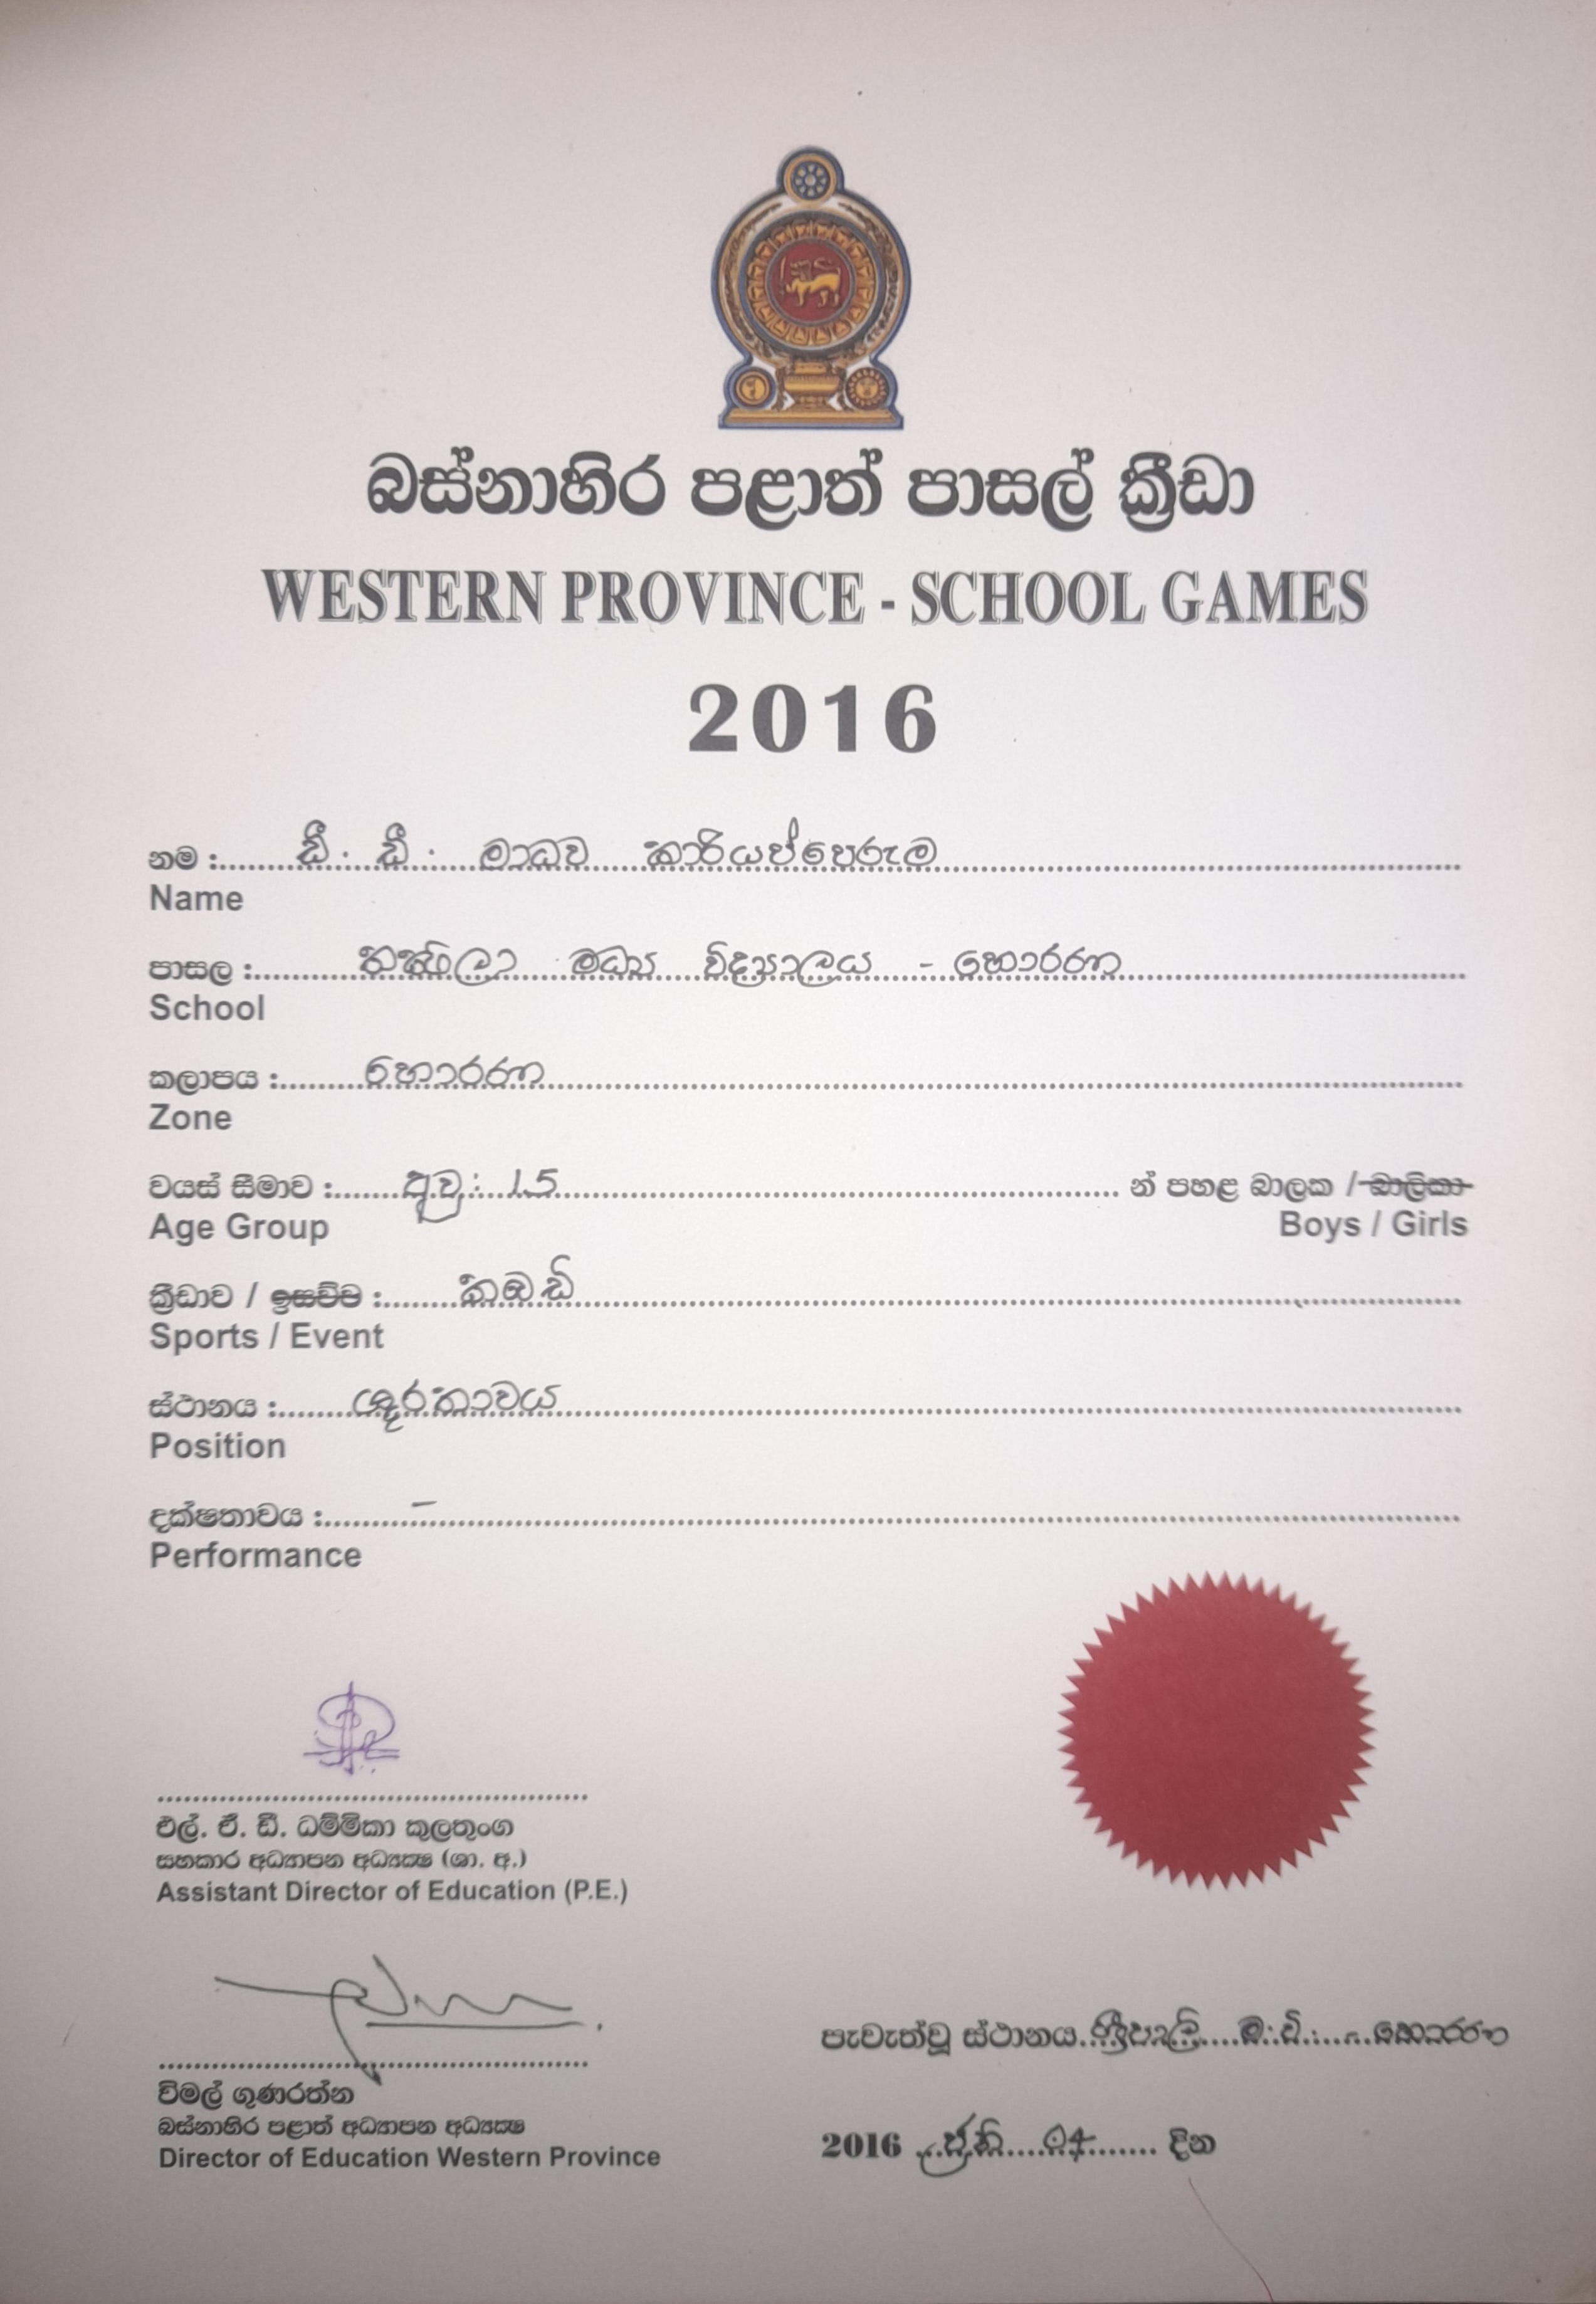 බස්නාහිර පළාත් පාසල් ක්‍රීඩා
WESTERN PROVINCE - SCHOOL GAMES
2016
නම :...... ඩී. ඩී. මාධව කාරියප්පෙරුම
Name
පාසල :...... තක්ෂිලා මධ්‍ය විද්‍යාලය - හොරණ
School
කලාපය :...... හොරණ
Zone
වයස් සීමාව :...... අවු: 15 ...... න් පහළ බාලක / බාලිකා
Age Group Boys / Girls
ක්‍රීඩාව / ඉසව්ව :...... කබඩි
Sports / Event
ස්ථානය :...... ශූරතාවය
Position
දක්ෂතාවය :...... –
Performance
එල්. ඒ. ඩී. ධම්මිකා කුලතුංග
සහකාර අධ්‍යාපන අධ්‍යක්ෂ (ශා. අ.)
Assistant Director of Education (P.E.)
පැවැත්වූ ස්ථානය...ශ්‍රීපාලි ම.වි. - හොරණ
විමල් ගුණරත්න
බස්නාහිර පළාත් අධ්‍යාපන අධ්‍යක්ෂ
Director of Education Western Province
2016 ...ජූනි... ...... දින